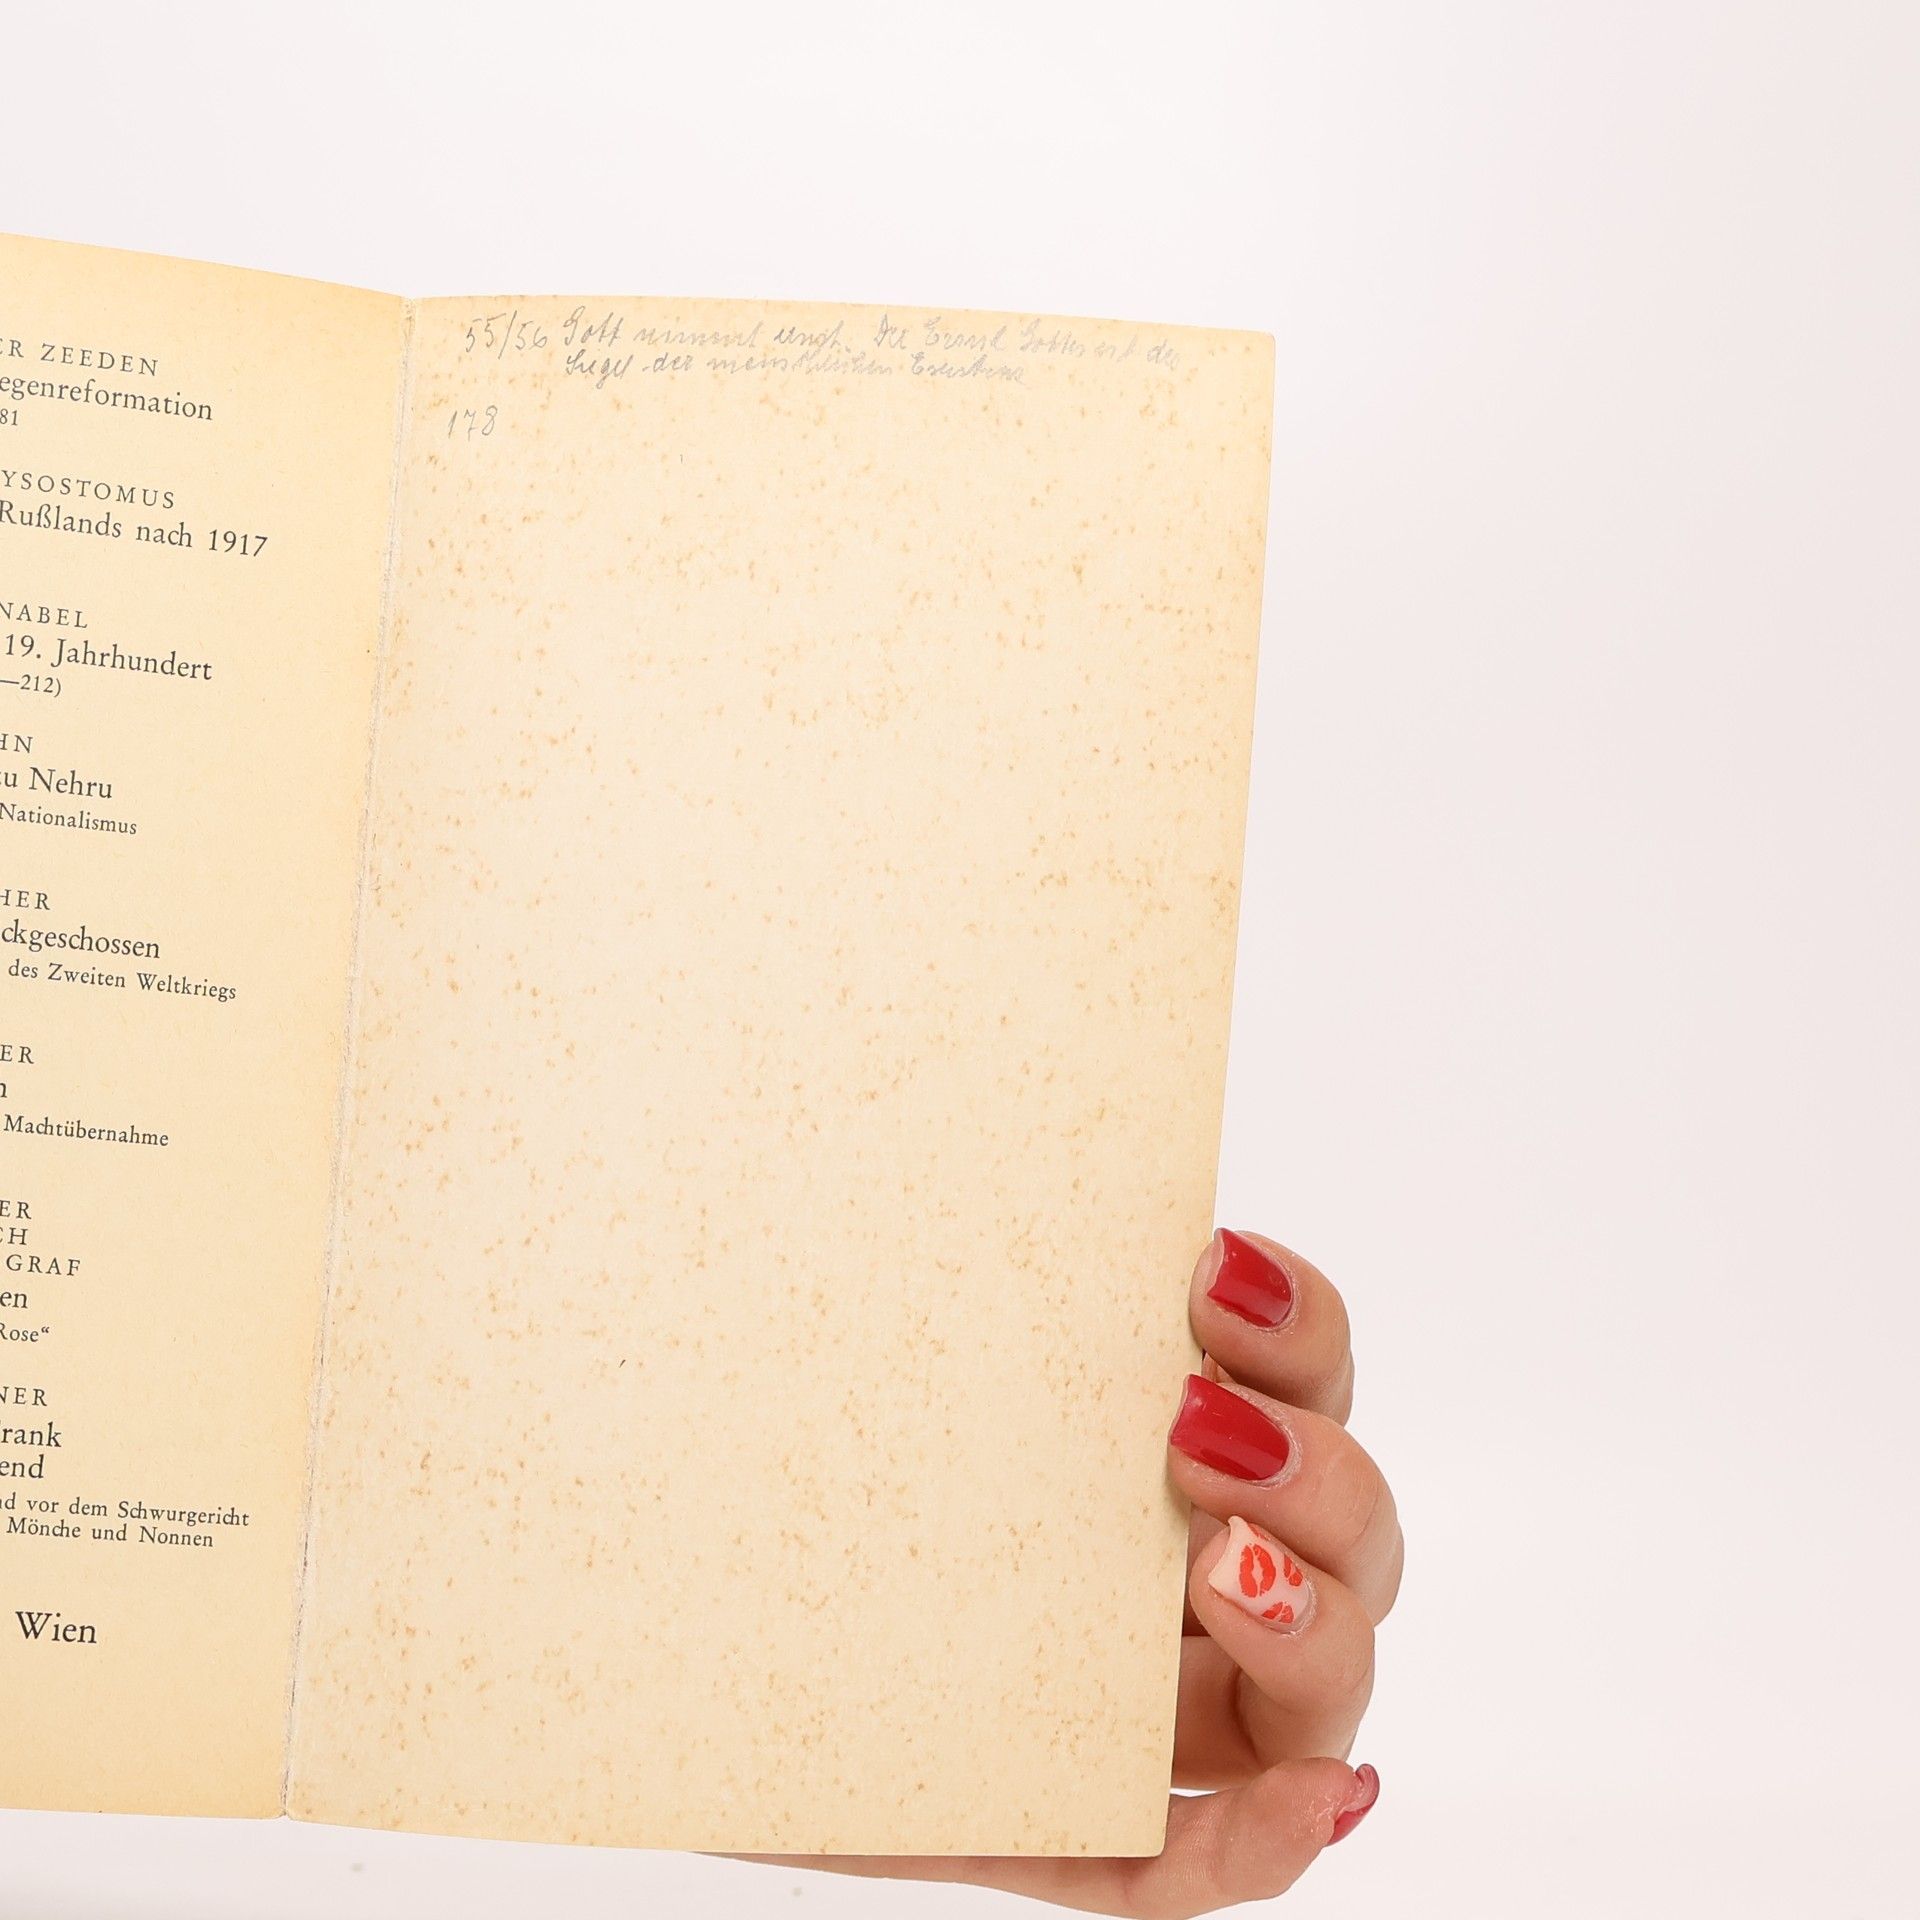 ER ZEEDEN
egenreformation
81
YSOSTOMUS
Rußlands nach 1917
NABEL
19. Jahrhundert
—212)
HN
zu Nehru
Nationalismus
HER
ckgeschossen
des Zweiten Weltkriegs
ER
n
Machtübernahme
ER
CH
GRAF
en
Rose“
NER
rank
end
nd vor dem Schwurgericht
Mönche und Nonnen
Wien
55/56 Gott nimmt ernst. Der Ernst Gottes ist das
Siegel der menschlichen Existenz
178